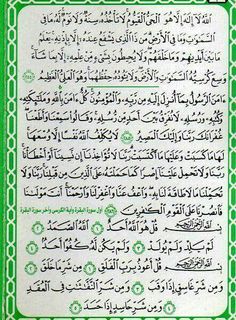 اللَّهُ لَا إِلَٰهَ إِلَّا هُوَ الْحَيُّ الْقَيُّومُ لَا تَأْخُذُهُ سِنَةٌ وَلَا نَوْمٌ لَهُ مَا فِي
السَّمَٰوَٰتِ وَمَا فِي الْأَرْضِ مَن ذَا الَّذِي يَشْفَعُ عِندَهُ إِلَّا بِإِذْنِهِ يَعْلَمُ
مَا بَيْنَ أَيْدِيهِمْ وَمَا خَلْفَهُمْ وَلَا يُحِيطُونَ بِشَيْءٍ مِّنْ عِلْمِهِ إِلَّا بِمَا شَاءَ
وَسِعَ كُرْسِيُّهُ السَّمَٰوَٰتِ وَالْأَرْضَ وَلَا يَئُودُهُ حِفْظُهُمَا وَهُوَ الْعَلِيُّ الْعَظِيمُ
ءَامَنَ الرَّسُولُ بِمَا أُنزِلَ إِلَيْهِ مِن رَّبِّهِ وَالْمُؤْمِنُونَ كُلٌّ ءَامَنَ بِاللَّهِ وَمَلَٰئِكَتِهِ
وَكُتُبِهِ وَرُسُلِهِ لَا نُفَرِّقُ بَيْنَ أَحَدٍ مِّن رُّسُلِهِ وَقَالُوا سَمِعْنَا وَأَطَعْنَا
غُفْرَانَكَ رَبَّنَا وَإِلَيْكَ الْمَصِيرُ لَا يُكَلِّفُ اللَّهُ نَفْسًا إِلَّا وُسْعَهَا
لَهَا مَا كَسَبَتْ وَعَلَيْهَا مَا اكْتَسَبَتْ رَبَّنَا لَا تُؤَاخِذْنَا إِن نَّسِينَا أَوْ أَخْطَأْنَا
رَبَّنَا وَلَا تَحْمِلْ عَلَيْنَا إِصْرًا كَمَا حَمَلْتَهُ عَلَى الَّذِينَ مِن قَبْلِنَا رَبَّنَا وَلَا
تُحَمِّلْنَا مَا لَا طَاقَةَ لَنَا بِهِ وَاعْفُ عَنَّا وَاغْفِرْ لَنَا وَارْحَمْنَا أَنتَ مَوْلَىٰنَا
فَانصُرْنَا عَلَى الْقَوْمِ الْكَٰفِرِينَ
بِسْمِ اللَّهِ الرَّحْمَٰنِ الرَّحِيمِ قُلْ هُوَ اللَّهُ أَحَدٌ ١ اللَّهُ الصَّمَدُ ٢
لَمْ يَلِدْ وَلَمْ يُولَدْ ٣ وَلَمْ يَكُن لَّهُ كُفُوًا أَحَدٌ ٤
بِسْمِ اللَّهِ الرَّحْمَٰنِ الرَّحِيمِ قُلْ أَعُوذُ بِرَبِّ الْفَلَقِ ١ مِن شَرِّ مَا خَلَقَ
٢ وَمِن شَرِّ غَاسِقٍ إِذَا وَقَبَ ٣ وَمِن شَرِّ النَّفَّٰثَٰتِ فِي الْعُقَدِ
٤ وَمِن شَرِّ حَاسِدٍ إِذَا حَسَدَ ٥